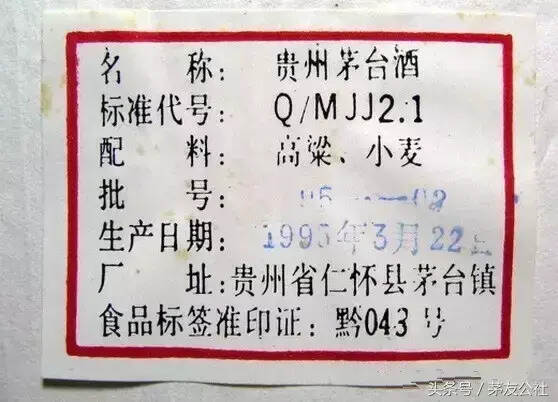 名 称: 贵州茅台酒
标准代号: Q/MJJ2.1
配 料: 高粱、小麦
批 号: 95 — 02
生产日期: 1995年3月22日
厂 址: 贵州省仁怀县茅台镇
食品标签准印证: 黔043号
头条号 / 茅友公社